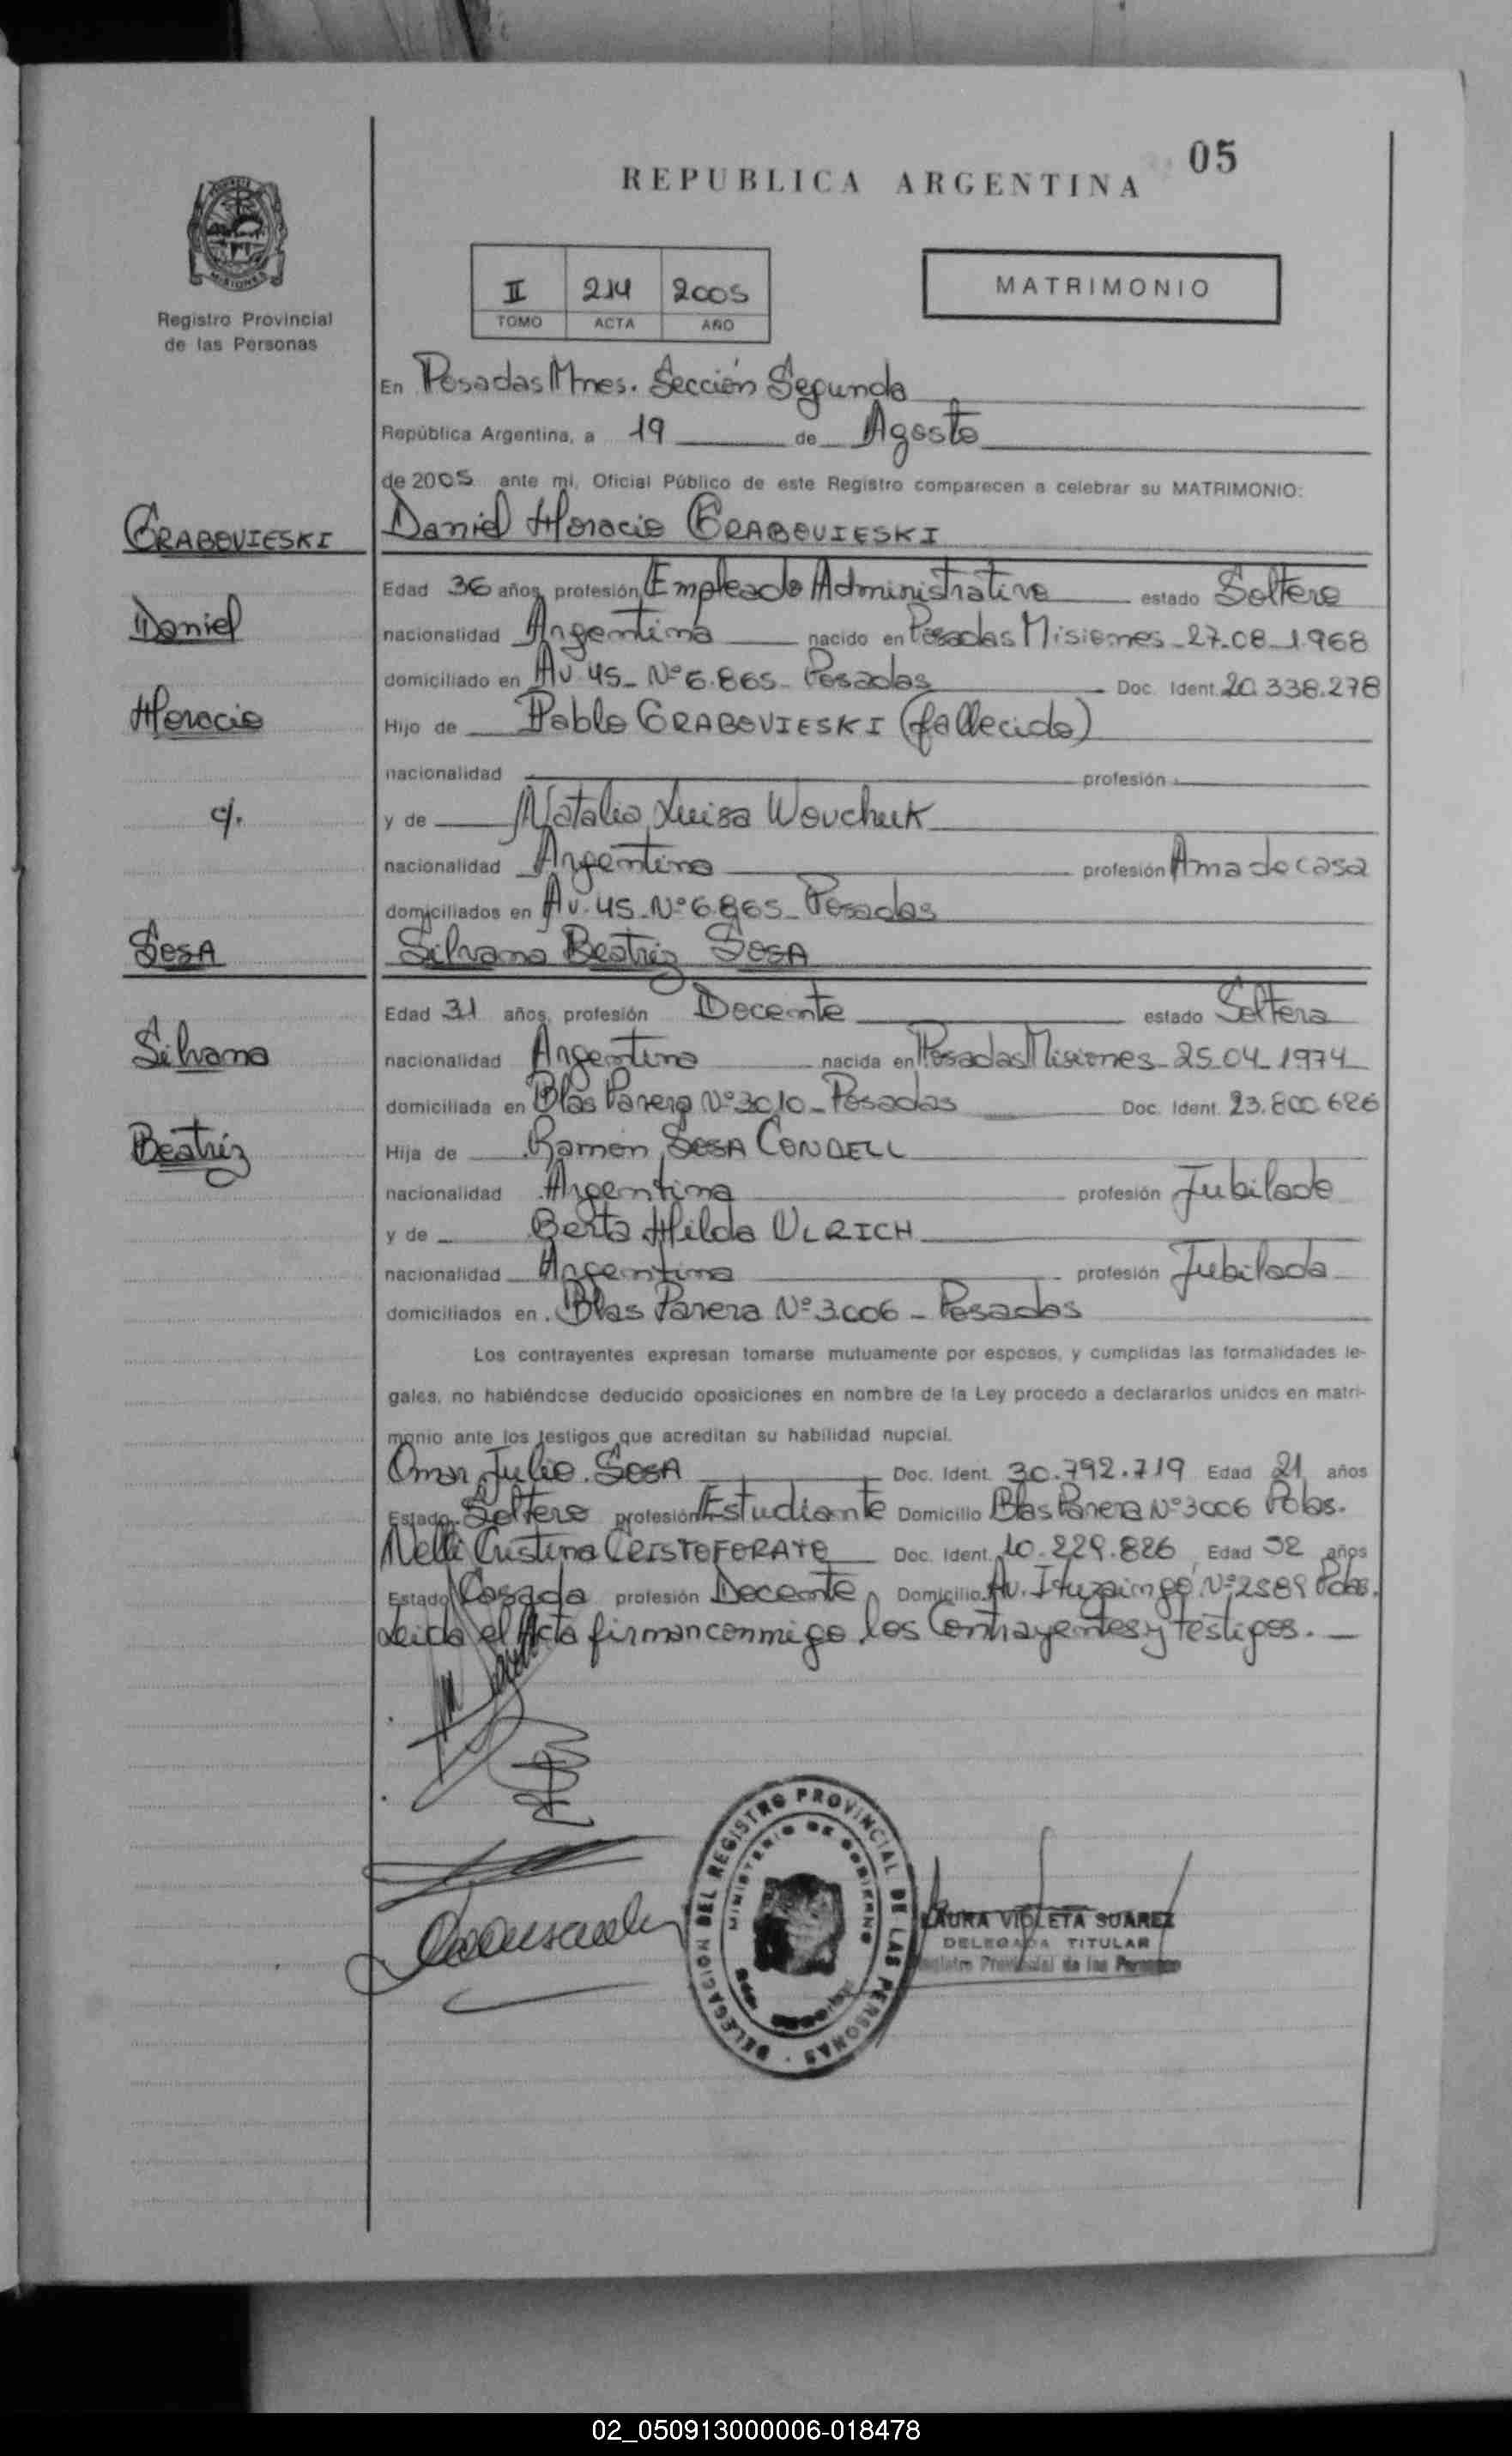 05
REPUBLICA ARGENTINA
MISIONES
Registro Provincial
de las Personas
II 214 2005
TOMO ACTA AÑO
MATRIMONIO
En Posadas Mnes. Sección Segunda
República Argentina, a 19 de Agosto
de 2005 ante mi, Oficial Público de este Registro comparecen a celebrar su MATRIMONIO:
GRABOVIESKI
Daniel Horacio GRABOVIESKI
Edad 36 años, profesión Empleado Administrativo estado Soltero
Daniel
nacionalidad Argentina nacido en Posadas Misiones - 27-08-1968
domiciliado en Av. 45 - Nº 6.865 - Posadas Doc. Ident. 20.338.278
Horacio
Hijo de Pablo GRABOVIESKI (fallecido)
nacionalidad profesión
c/.
y de Natalia Luisa Wovchuk
nacionalidad Argentina profesión Ama de casa
domiciliados en Av. 45 - Nº 6.865 - Posadas
SOSA
Silvana Beatriz SOSA
Edad 31 años, profesión Docente estado Soltera
Silvana
nacionalidad Argentina nacida en Posadas Misiones - 25-04-1974
domiciliada en Blas Parera Nº 3010 - Posadas Doc. Ident. 23.800.626
Beatriz
Hija de Ramón SOSA CONDELL
nacionalidad Argentina profesión Jubilado
y de Berta Hilda ULRICH
nacionalidad Argentina profesión Jubilada
domiciliados en Blas Parera Nº 3006 - Posadas
Los contrayentes expresan tomarse mutuamente por esposos, y cumplidas las formalidades le-
gales, no habiéndose deducido oposiciones en nombre de la Ley procedo a declararlos unidos en matri-
monio ante los testigos que acreditan su habilidad nupcial.
Omar Julio SOSA Doc. Ident. 30.792.719 Edad 21 años
Estado Soltero profesión Estudiante Domicilio Blas Parera Nº 3006 Pdas.
Nelli Cristina CRISTOFORATO Doc. Ident. 10.229.826 Edad 52 años
Estado Casada profesión Docente Domicilio Av. Ituzaingó Nº 2589 Pdas.
Leida el Acta firman conmigo los Contrayentes y testigos. —
DELEGACION DEL REGISTRO PROVINCIAL DE LAS PERSONAS
MINISTERIO DE GOBIERNO
LAURA VIOLETA SUAREZ
DELEGADA TITULAR
Registro Provincial de las Personas
02_050913000006-018478